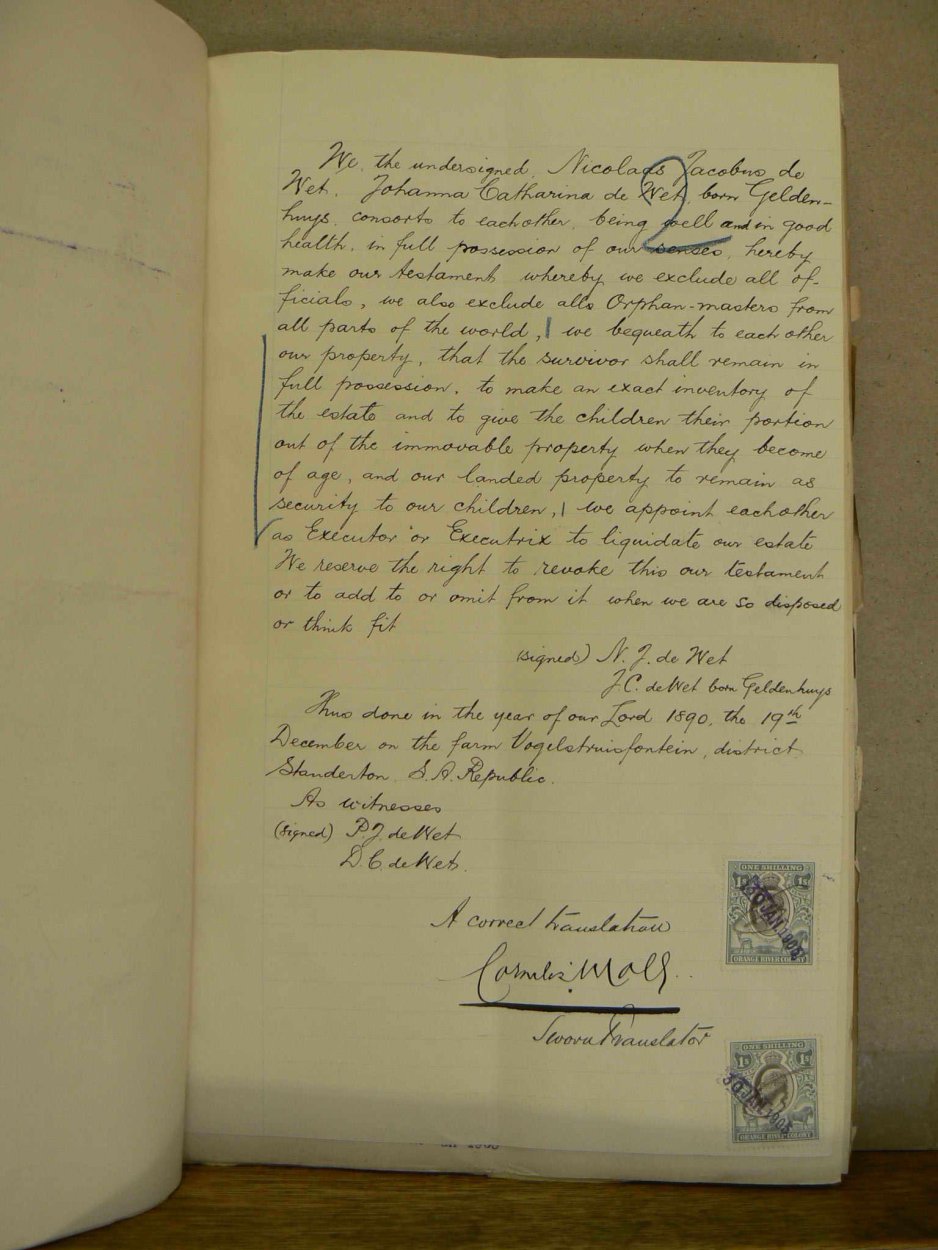 We, the undersigned, Nicolaas Jacobus de
Wet. Johanna Catharina de Wet, born Gelden-
huys, consorts to eachother, being well and in good
health, in full possession of our senses, hereby
make our testament whereby we exclude all of-
ficials, we also exclude alls Orphan-masters from
all parts of the world, | we bequeath to each other
our property, that the survivor shall remain in
full possession, to make an exact inventory of
the estate and to give the children their portion
out of the immovable property when they become
of age, and our landed property to remain as
security to our children, | we appoint eachother
as Executor or Executrix to liquidate our estate
We reserve the right to revoke this our testament
or to add to or omit from it when we are so disposed
or think fit
(signed) N. J. de Wet
J. C. de Wet born Geldenhuys
Thus done in the year of our Lord 1890, the 19th
December on the farm Vogelstruisfontein, district
Standerton, S. A. Republic.
As witnesses
(signed) P. J. de Wet
D. C. de Wet.
2
A correct translation
Cornelis Moll
Sworn Translator
ONE SHILLING
1s 1s
30 JAN 1905
ORANGE RIVER COLONY
ONE SHILLING
1s 1s
30 JAN 1905
ORANGE RIVER COLONY